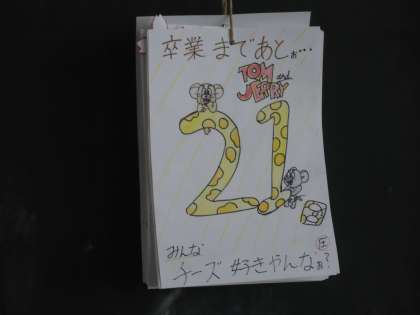 卒業まであとぉ…
TOM and
JERRY
21
みんな
チーズ好きやんなぁ?